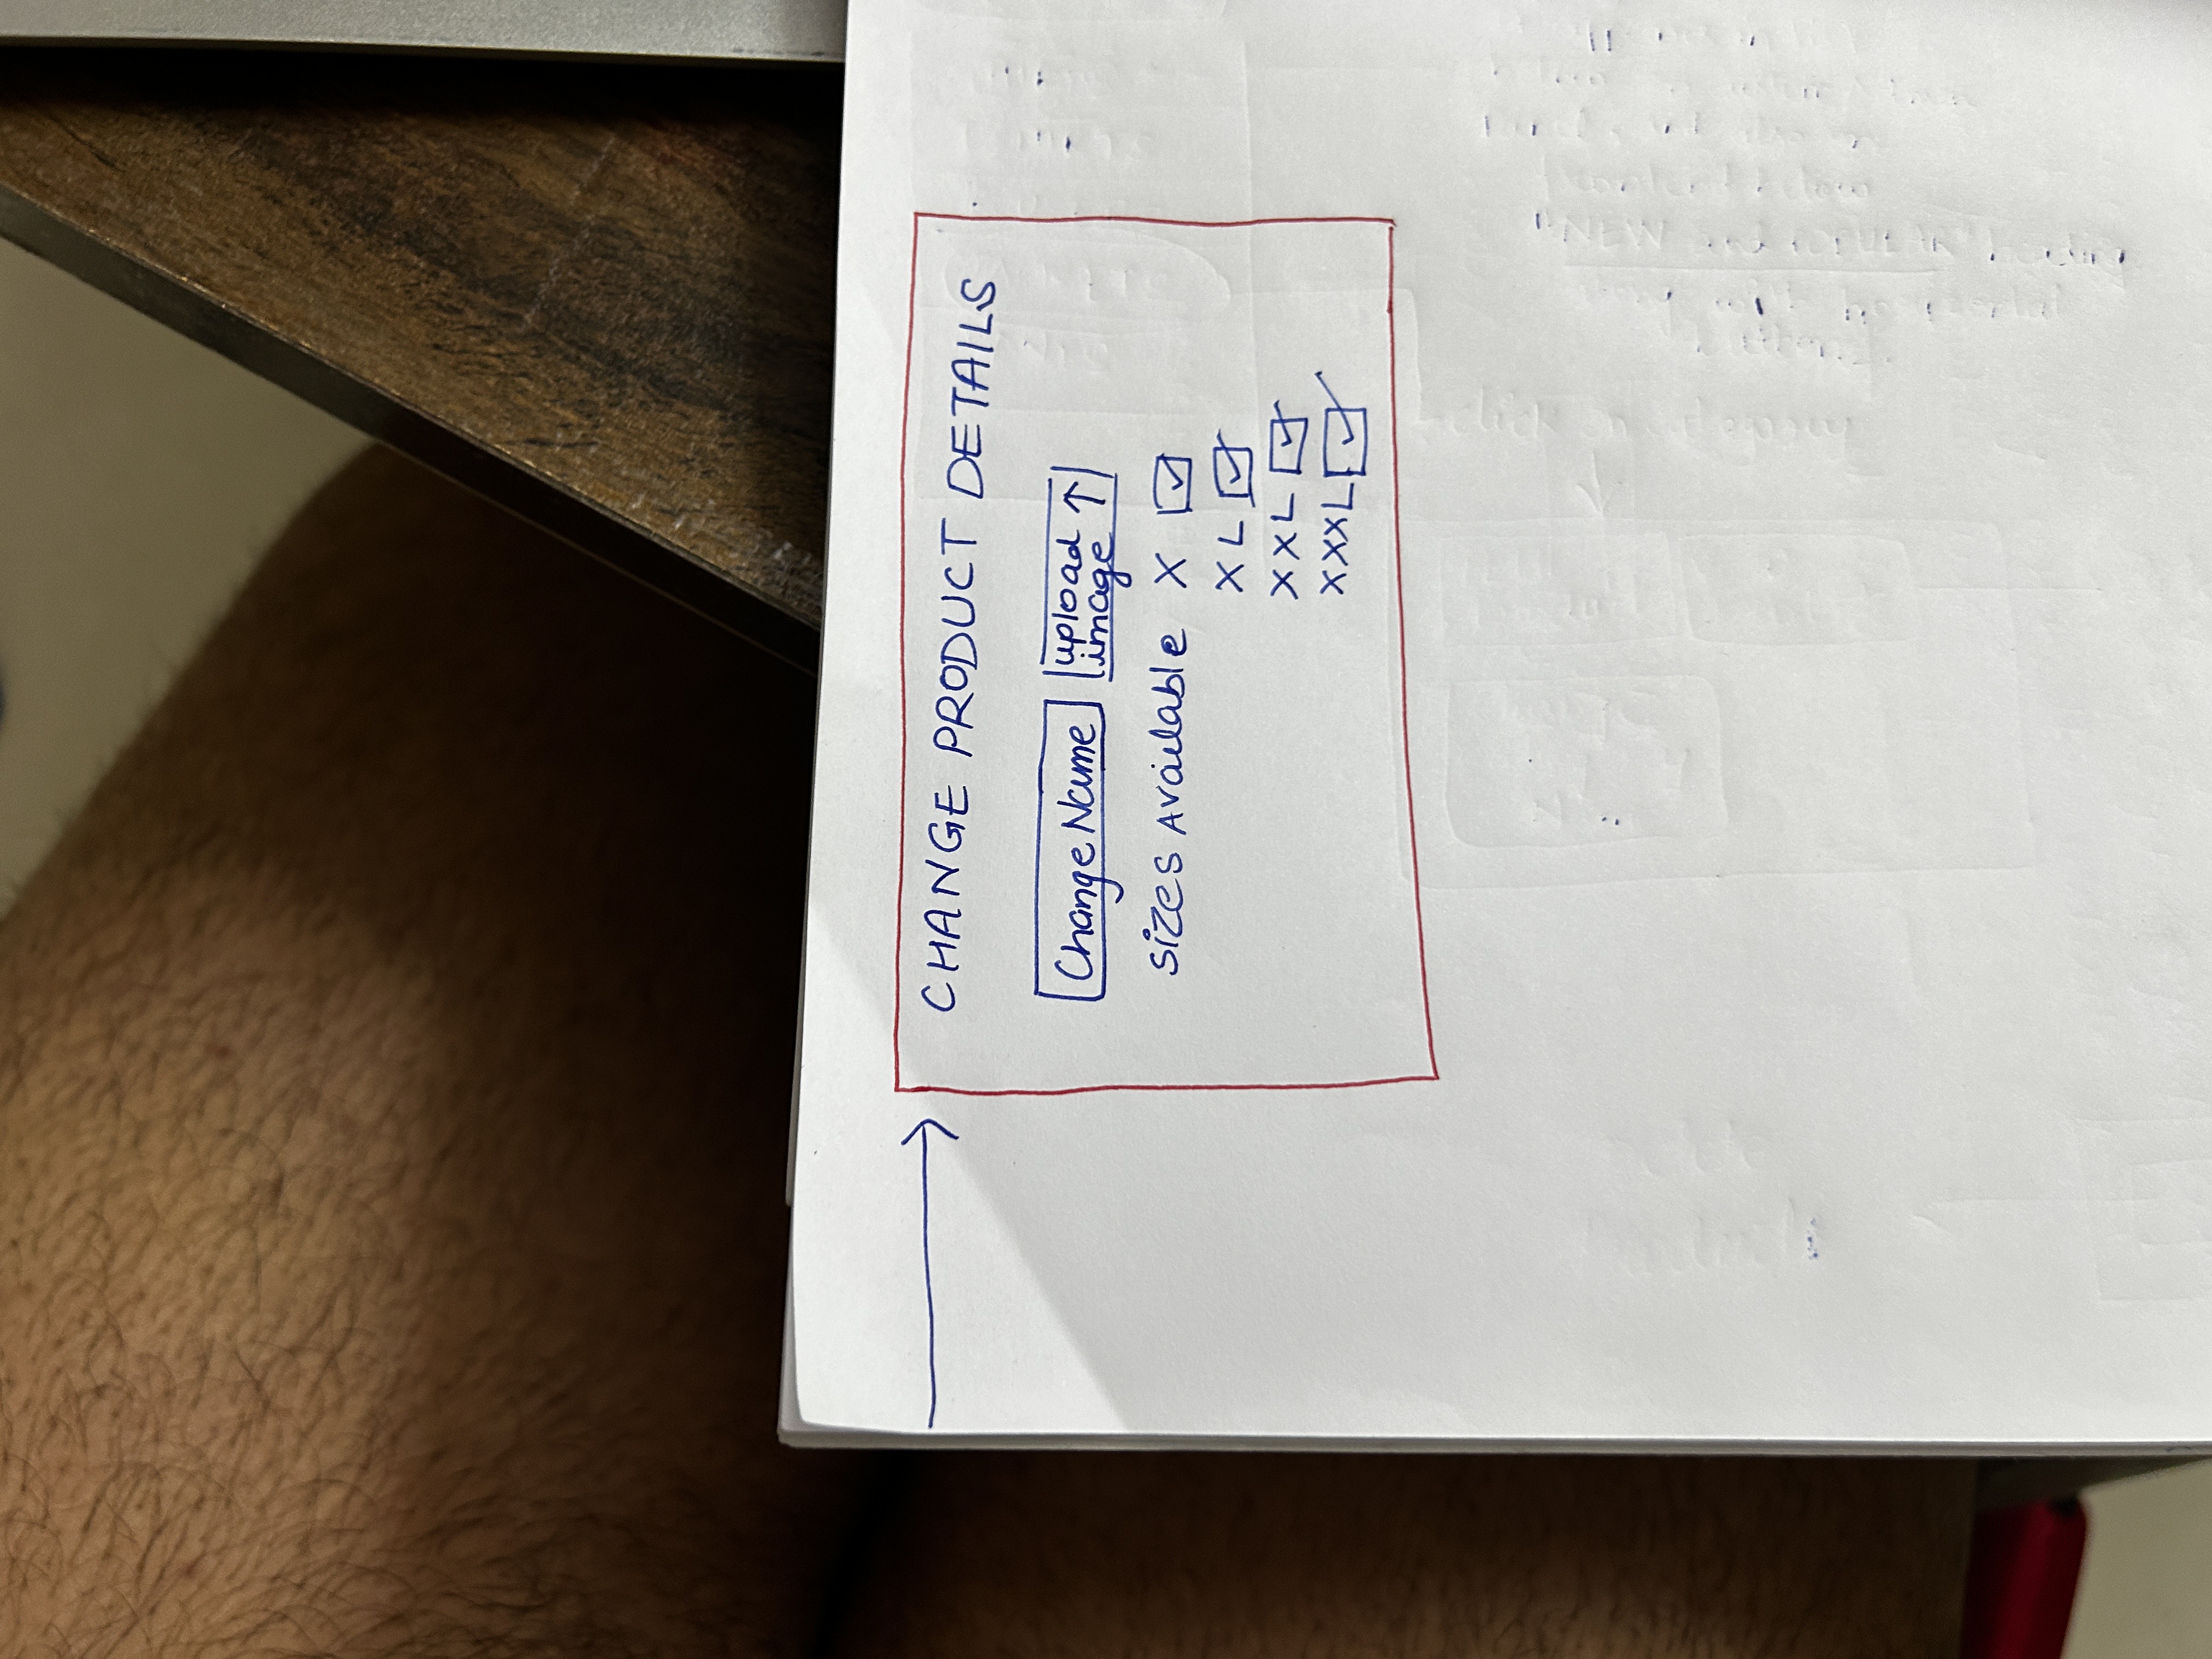 CHANGE PRODUCT DETAILS
Change Name upload
image ↑
SIZES Available X ☑
XL ☑
XXL ☑
XXXL ☑